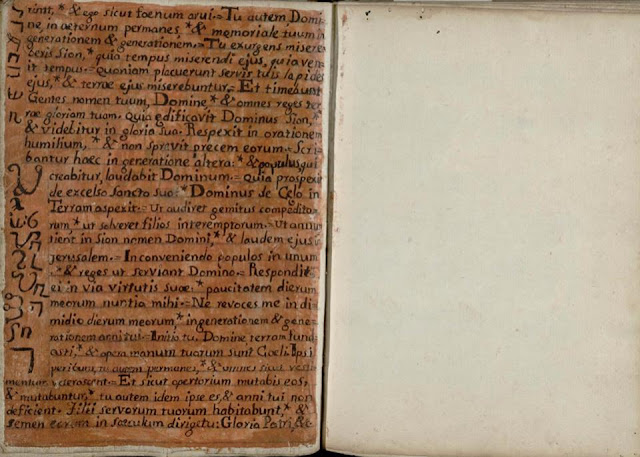 runt, * & ego sicut foenum arui. - Tu autem Domi
ne in aeternum permanes, * & memoriale tuum in
generationem & generationem. - Tu exurgens misere
beris Sion, * quia tempus miserendi ejus, quia ven
it tempus. - Quoniam placuerunt servis tuis lapides
ejus, * & terrae ejus miserebuntur. - Et timebunt
Gentes nomen tuum, Domine * & omnes reges ter
rae gloriam tuam. Quia edificavit Dominus Sion, *
& videbitur in gloria sua. Respexit in orationem
humilium, * & non sprevit precem eorum. - Scri
bantur haec in generatione altera: * & populus, qui
creabitur, laudabit Dominum. - Quia prospexit
de excelso sancto suo: * Dominus de Celo in
Terram aspexit. - Ut audiret gemitus compedito
rum, * ut solveret filios interemptorum. - Ut annu
tient in Sion nomen Domini, * & laudem ejus i
Jerusalem. - In conveniendo populos in unum
* & reges ut serviant Domino. - Respondit
ei in via virtutis suae: * paucitatem dierum
meorum nuntia mihi. - Ne revoces me in di
midio dierum meorum, * in generationem & gene
rationem anni tui. - Initio tu, Domine, terram fund
asti, * & opera manuum tuorum sunt Coeli. Ipsi
peribunt, tu autem permanes, * & omnes sicut vesti
mentum veterascent. - Et sicut opertorium mutabis eos,
& mutabuntur, * tu autem idem ipse es, & anni tui non
deficient. - Filii servorum tuorum habitabunt, * &
semen eorum in saeculum dirigetur. Gloria Patri, &c